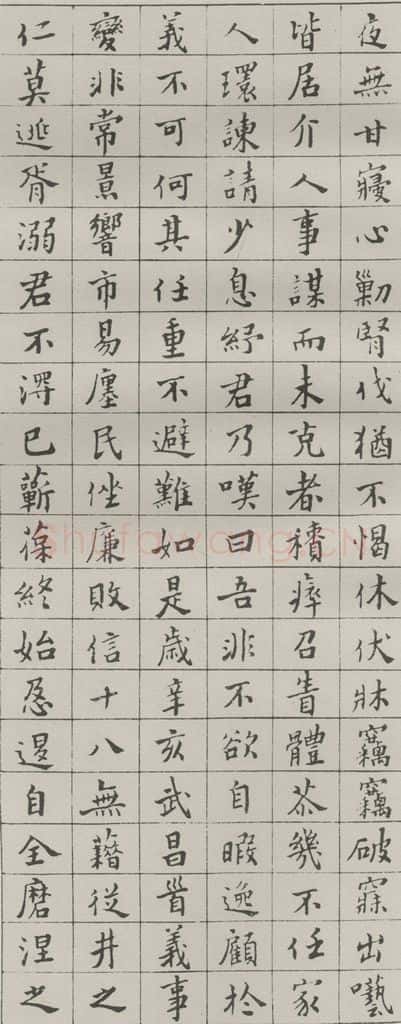 夜無甘寢心勦腎伐猶不愒休伏牀竊竊破寐出囈
皆居介人事謀而未克者積瘁召眚體苶幾不任家
人環諫請少息紓君乃嘆曰吾非不欲自暇逸顧於
義不可何其任重不避難如是歲辛亥武昌首義事
變非常景響市易廛民侳廉敗信十八無藉從井之
仁莫逃胥溺君不淂已蘄葆終始自全磨涅之
Shufawang.CN